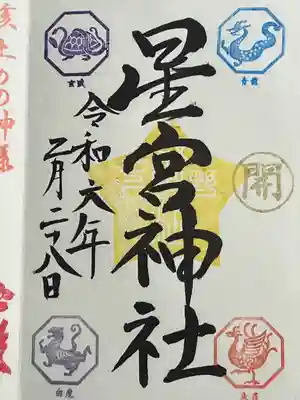 青龍
開
朱雀
星宮神社
玄武
令和六年
二月二八日
白虎
の神様